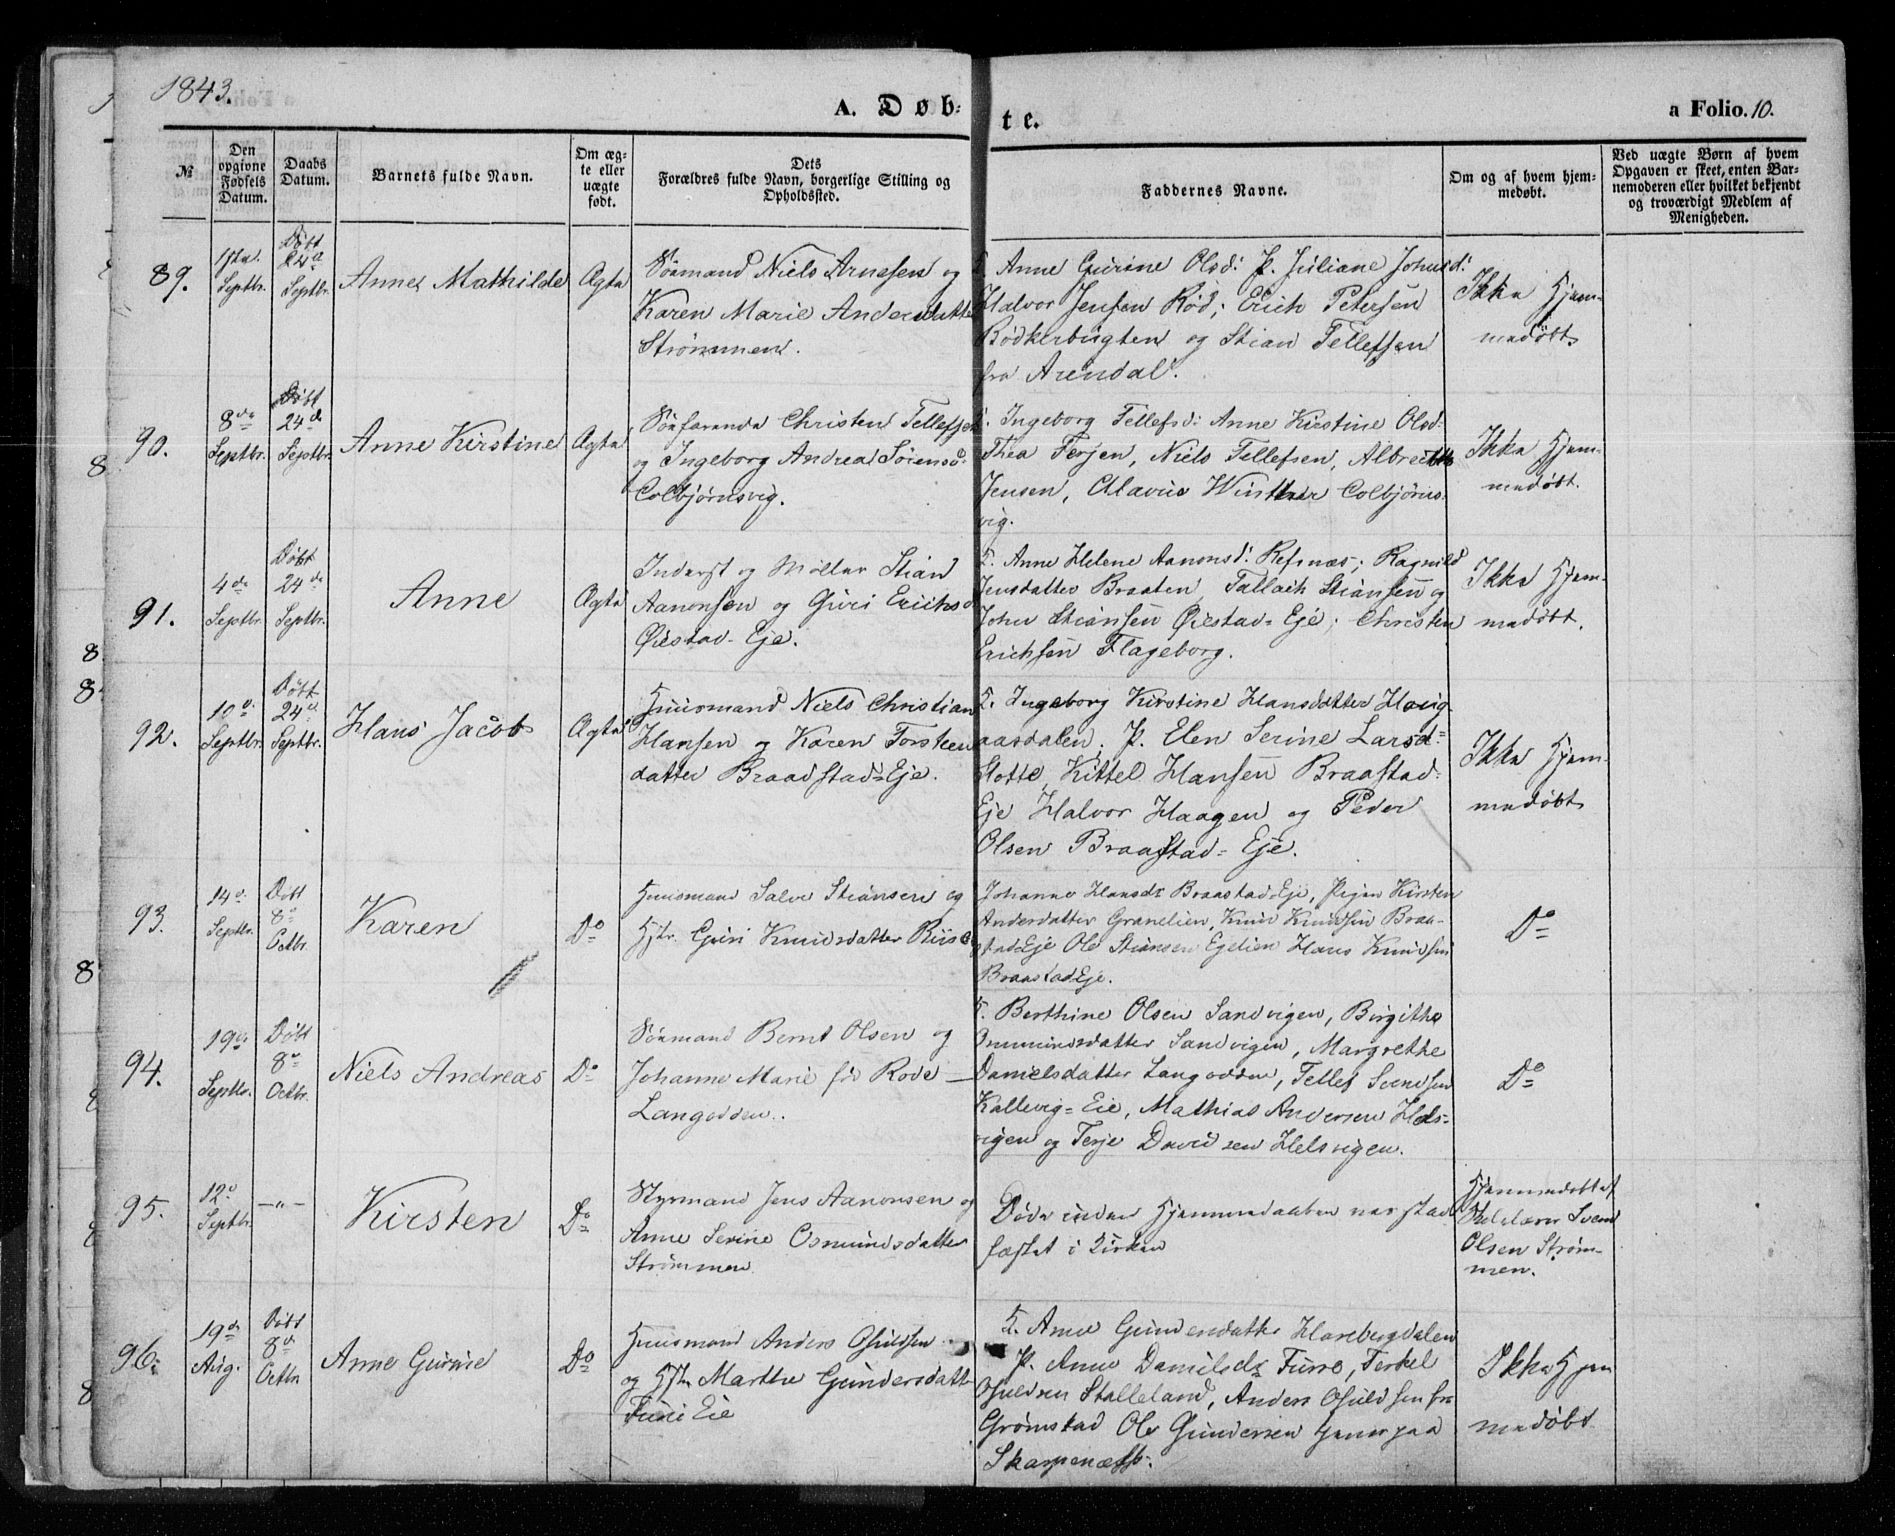 1843.
A. Døb-
te.
a Folio. 10.
№
Den opgivne Fødsels Datum.
Daabs Datum.
Barnets fulde Navn.
Om ægte eller uægte født.
Dets Forældres fulde Navn, borgerlige Stilling og Opholdssted.
Faddernes Navne.
Om og af hvem hjemmedøbt.
Ved uægte Børn af hvem Opgaven er skeet, enten Barnemoderen eller hvilket bekjendt og troværdigt Medlem af Menigheden.
89.
17de Septbr.
Døbt 24de Septbr.
Anne Mathilde
Ægte
Sömand Niels Arnesen og
Karen Marie Andersdatter
Strømmen.
F. Anne Gurine Olsd: P. Juliane Johnsd:
Halvor Jensen Rød; Erich Petersen
Bødkerbugten og Stian Tellefsen
fra Arendal.
Ikke Hjem-
medøbt
90.
8de Septbr.
Døbt 24de Septbr.
Anne Kirstine
Ægte
Søefarende Christen Tellefsen
og Ingeborg Andrea Sørensd:
Colbjørnsvig.
F. Ingeborg Tellefsd: Anne Kirstine Olsd:
Thea Terjen, Niels Tellefsen, Albrecht
Jensen, Olavus Winther Colbjörns-
vig.
Ikke Hjem-
medøbt.
91.
4de Septbr.
Døbt 24de Septbr.
Anne
Ægte
Inderst og Møller Stian
Aanonsen og Guri Erichsd
Øiestad-Eje.
F. Anne Helene Aanonsd: Refsnæs; Ragnild
Jensdatter Braaten, Tallach Stiansen og
John Stiansen Øiestad-Eje; Christen
Erichsen Flageborg.
Ikke Hjem-
medøbt.
92.
10de Septbr.
Døbt 24de Septbr.
Hans Jacob
Ægte
Huusmand Niels Christian
Hansen og Karen Torsteen
datter Braadstad-Eje.
F. Ingeborg Kirstine Hansdatter Houg-
aasdalen. P. Elen Serine Larsd-
Slotte, Kittel Hansen Braastad-
Eje Halvor Haagen og Peder
Olsen Braastad-Eje.
Ikke Hjem-
medøbt
93.
14de Septbr.
Døbt 8de Octbr.
Karen
Do
Huusmand Salve Stiansen og
Hstr. Guri Knudsdatter Riise
Johanne Hansdr Braastad-Eje, Pigen Kirsten
Andersdatter Granelien, Knud Knudsen Braa-
stadEje Ole Stiansen Egelien Hans Knudsen
BraastadEje.
Do
94.
19de Septbr.
Døbt 8de Octbr.
Niels Andreas
Do
Sömand Bernt Olsen og
Johanne Marie fød Rode —
Langodden.
F. Berthine Olsen Sandvigen, Birgithe
Ommundsdatter Sandvigen, Margrethe
Danielsdatter Langodden, Tellef Svendsen
Kallevig-Eie, Mathias Andersen Hels-
vigen og Terje Davidsen Helsvigen.
Do
95.
12te Septbr.
—"—
Kirsten
Do
Styrmand Jens Aanonsen og
Anne Serine Osmundsdatter
Strømmen
Døde inden Hjemmedaaben var stad-
fæstet i Kirken
Hjemmedøbt af
Skolelærer Svend
Olsen Strøm-
men.
96.
19de Aug.
Døbt 8de Octbr
Anne Gurine
Do
Huusmand Anders Osuldsen
og Hstr Marthe Gundersdatter
Furre Eie
F. Anne Gundersdatter Harebergdalen
P. Anne Danielsdr Furre, Terkel
Osuldsen Stalleland, Anders Osuldsen fra
Grømstad Ole Gundersen
Skarpenæss.
Ikke Hjem
medøbt